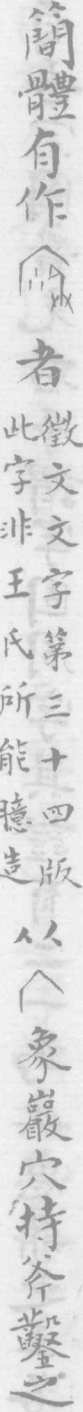 簡體有作
者
徵文文字第三十四版
此字非王氏所能臆造
从
象巖穴持斧鑿之